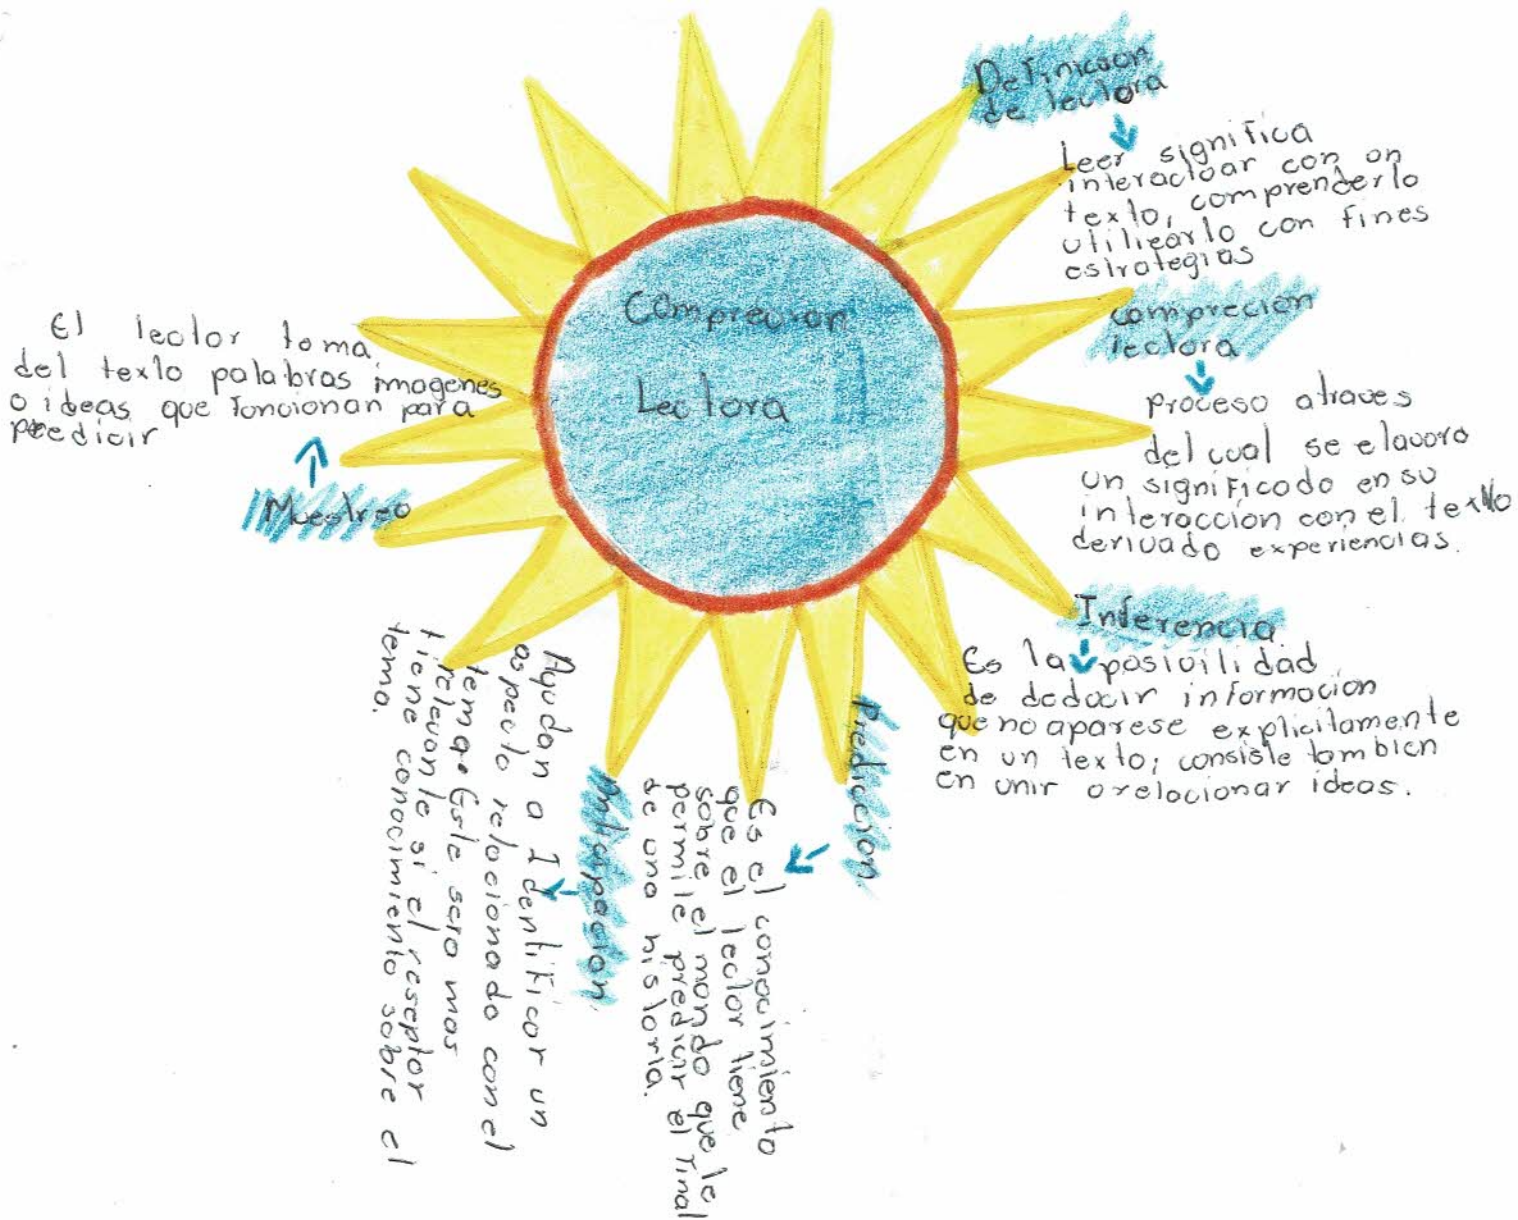 Comprecion
Lectora
Definicion
de lectora
Leer significa
interactuar con un
texto, comprenderlo
utilizarlo con fines
estrategias
comprecion
lectora
proceso atraves
del cual se elavora
un significado en su
interaccion con el texto
derivado experiencias.
Inferencia
Es la posivilidad
de deducir informacion
que no aparese explicitamente
en un texto; consiste tambien
en unir o relacionar ideas.
Prediccion.
Es el conocimiento
que el lector tiene
sobre el mondo que le
permite predicir el final
de una historia.
Anticipacion.
Ayudan a Identificar un
aspecto relacionado con el
tema. Este sera mas
relevante si el reseptor
tiene conocimiento sobre el
tema.
Muestreo
El lector toma
del texto palabras imagenes
o ideas que funcionan para
predicir